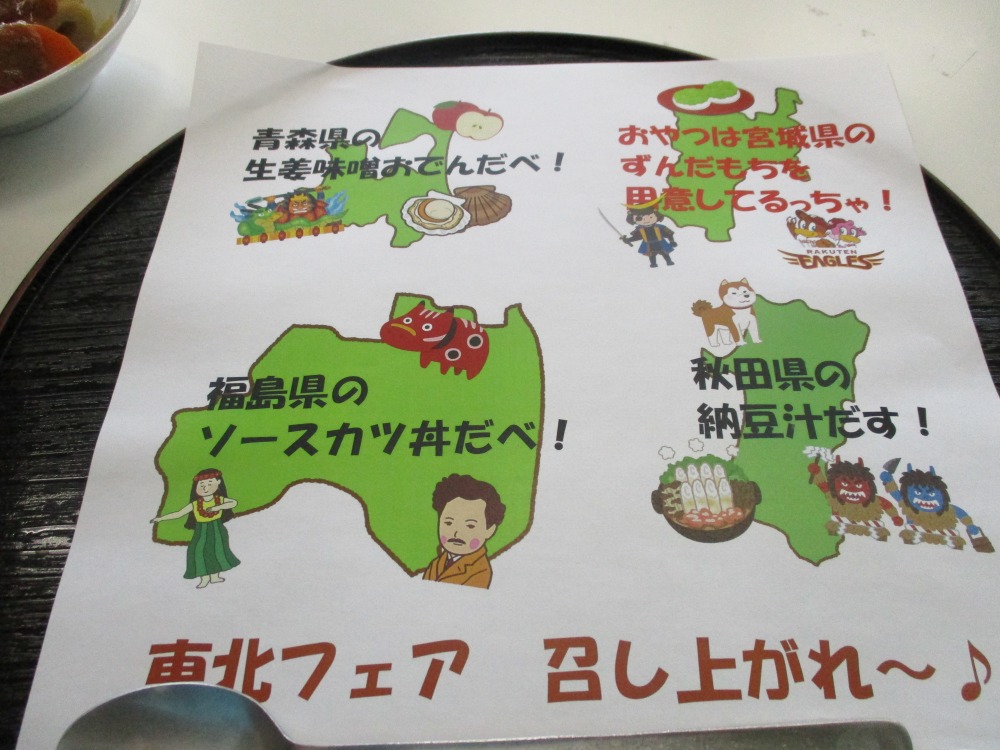 青森県の
生姜味噌おでんだべ！
おやつは宮城県の
ずんだもちを
用意してるっちゃ！
RAKUTEN
EAGLES
福島県の
ソースカツ丼だべ！
秋田県の
納豆汁だす！
東北フェア 召し上がれ～♪